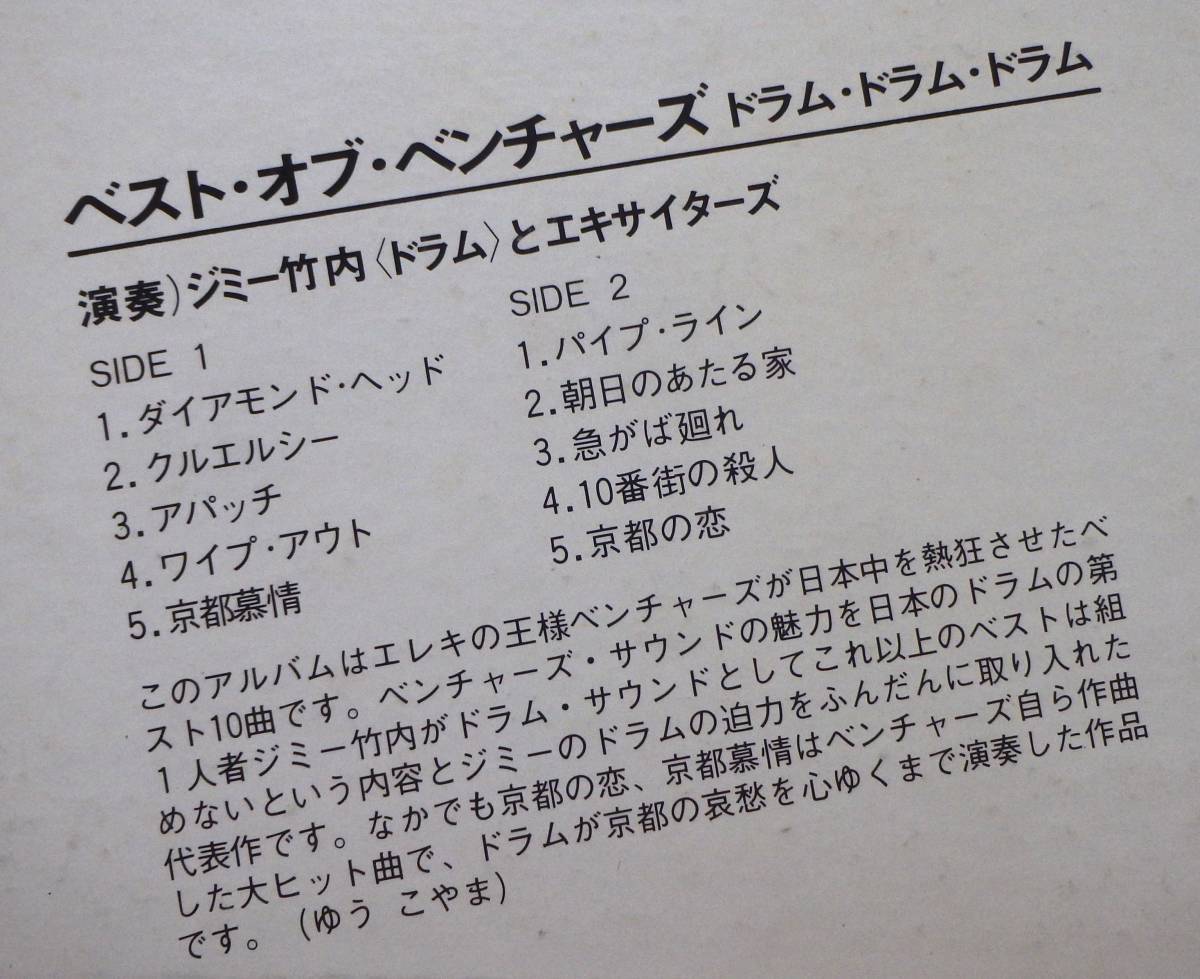 ベスト・オブ・ベンチャーズ ドラム・ドラム・ドラム
演奏）ジミー竹内〈ドラム〉とエキサイターズ
SIDE 1
1.ダイアモンド・ヘッド
2.クルエルシー
3.アパッチ
4.ワイプ・アウト
5.京都慕情
SIDE 2
1.パイプ・ライン
2.朝日のあたる家
3.急がば廻れ
4.10番街の殺人
5.京都の恋
このアルバムはエレキの王様ベンチャーズが日本中を熱狂させたベ
スト10曲です。ベンチャーズ・サウンドの魅力を日本のドラムの第
1人者ジミー竹内がドラム・サウンドとしてこれ以上のベストは組
めないという内容とジミーのドラムの迫力をふんだんに取り入れた
代表作です。なかでも京都の恋、京都慕情はベンチャーズ自ら作曲
した大ヒット曲で、ドラムが京都の哀愁を心ゆくまで演奏した作品
です。（ゆう こやま）